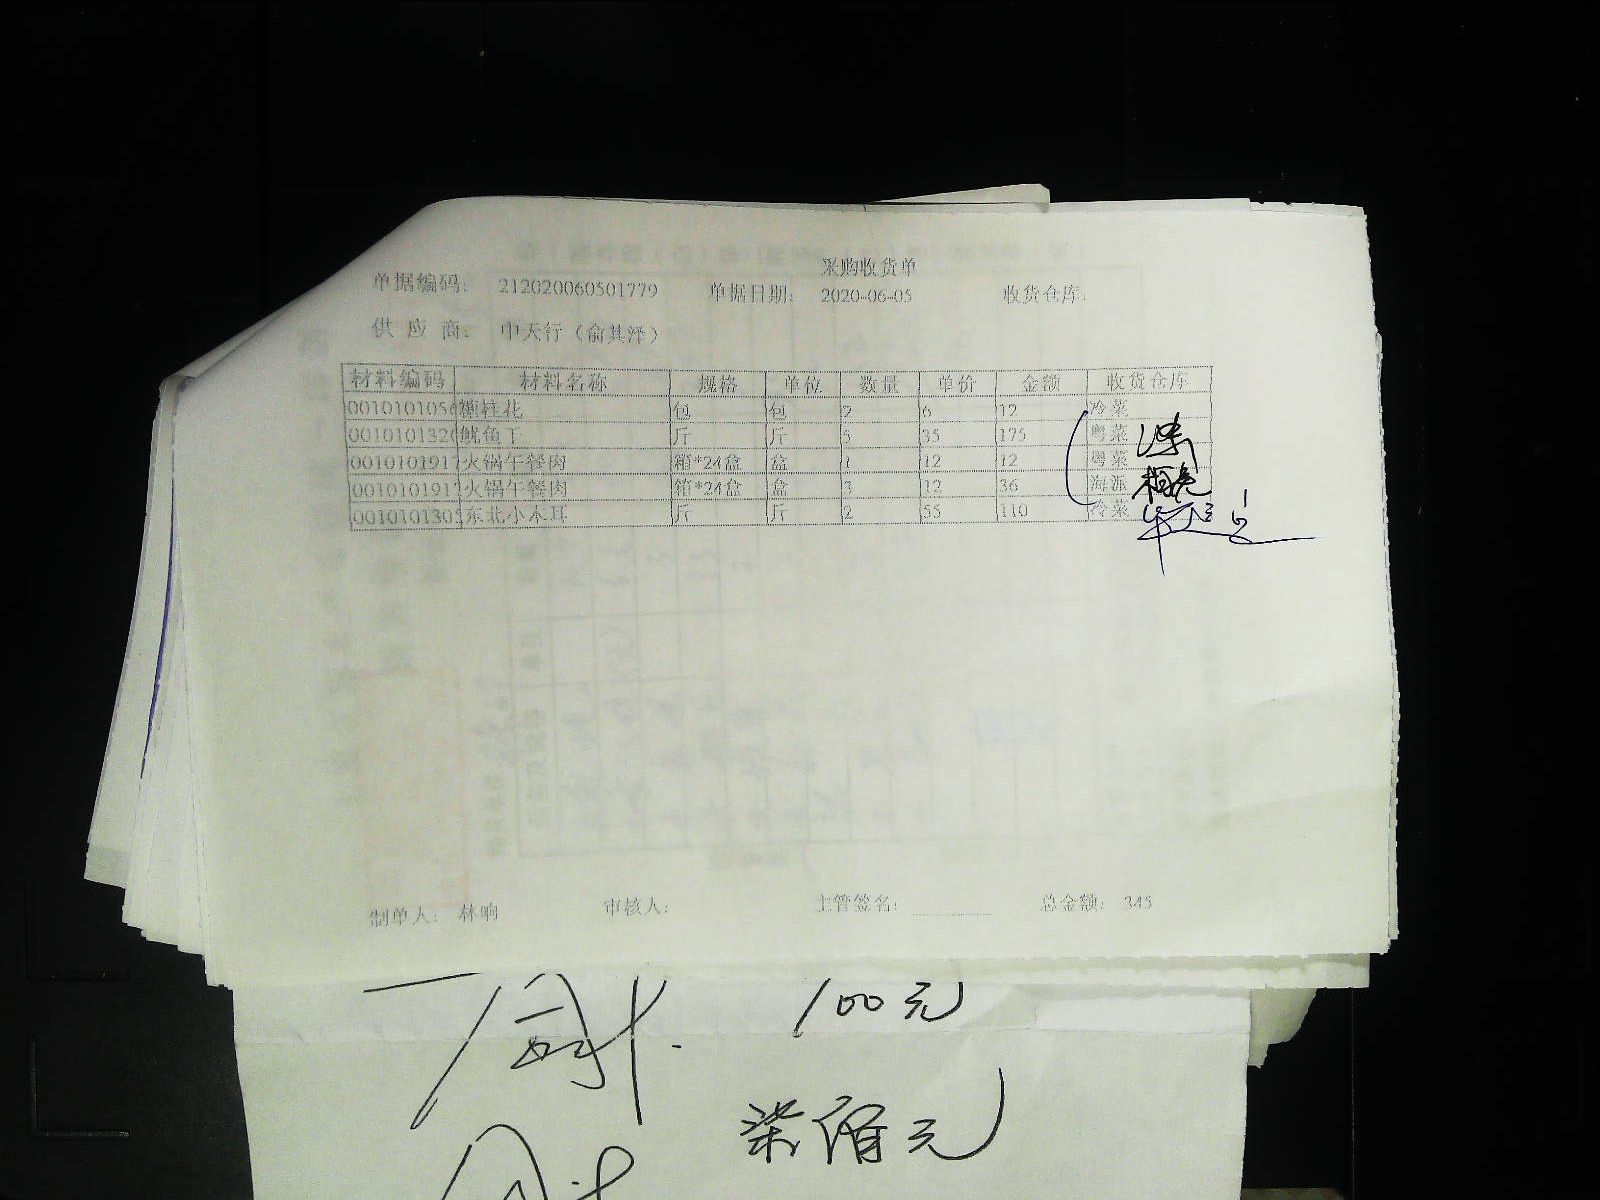 采购收货单
单据编码: 212020060501779 单据日期: 2020-06-05 收货仓库:
供 应 商: 中天行（俞其泽）
材料编码 材料名称 规格 单位 数量 单价 金额 收货仓库
0010101056 桂花 包 包 2 6 12 冷菜
0010101320 鱿鱼丁 斤 斤 5 35 175 粤菜
001010191 火锅午餐肉 箱*24盒 盒 1 12 12 粤菜
001010191 火锅午餐肉 箱*24盒 盒 3 12 36 海派
001010130 东北小木耳 斤 斤 2 55 110 冷菜
制单人: 林响 审核人: 主管签名: 总金额: 345
100元
柒佰元